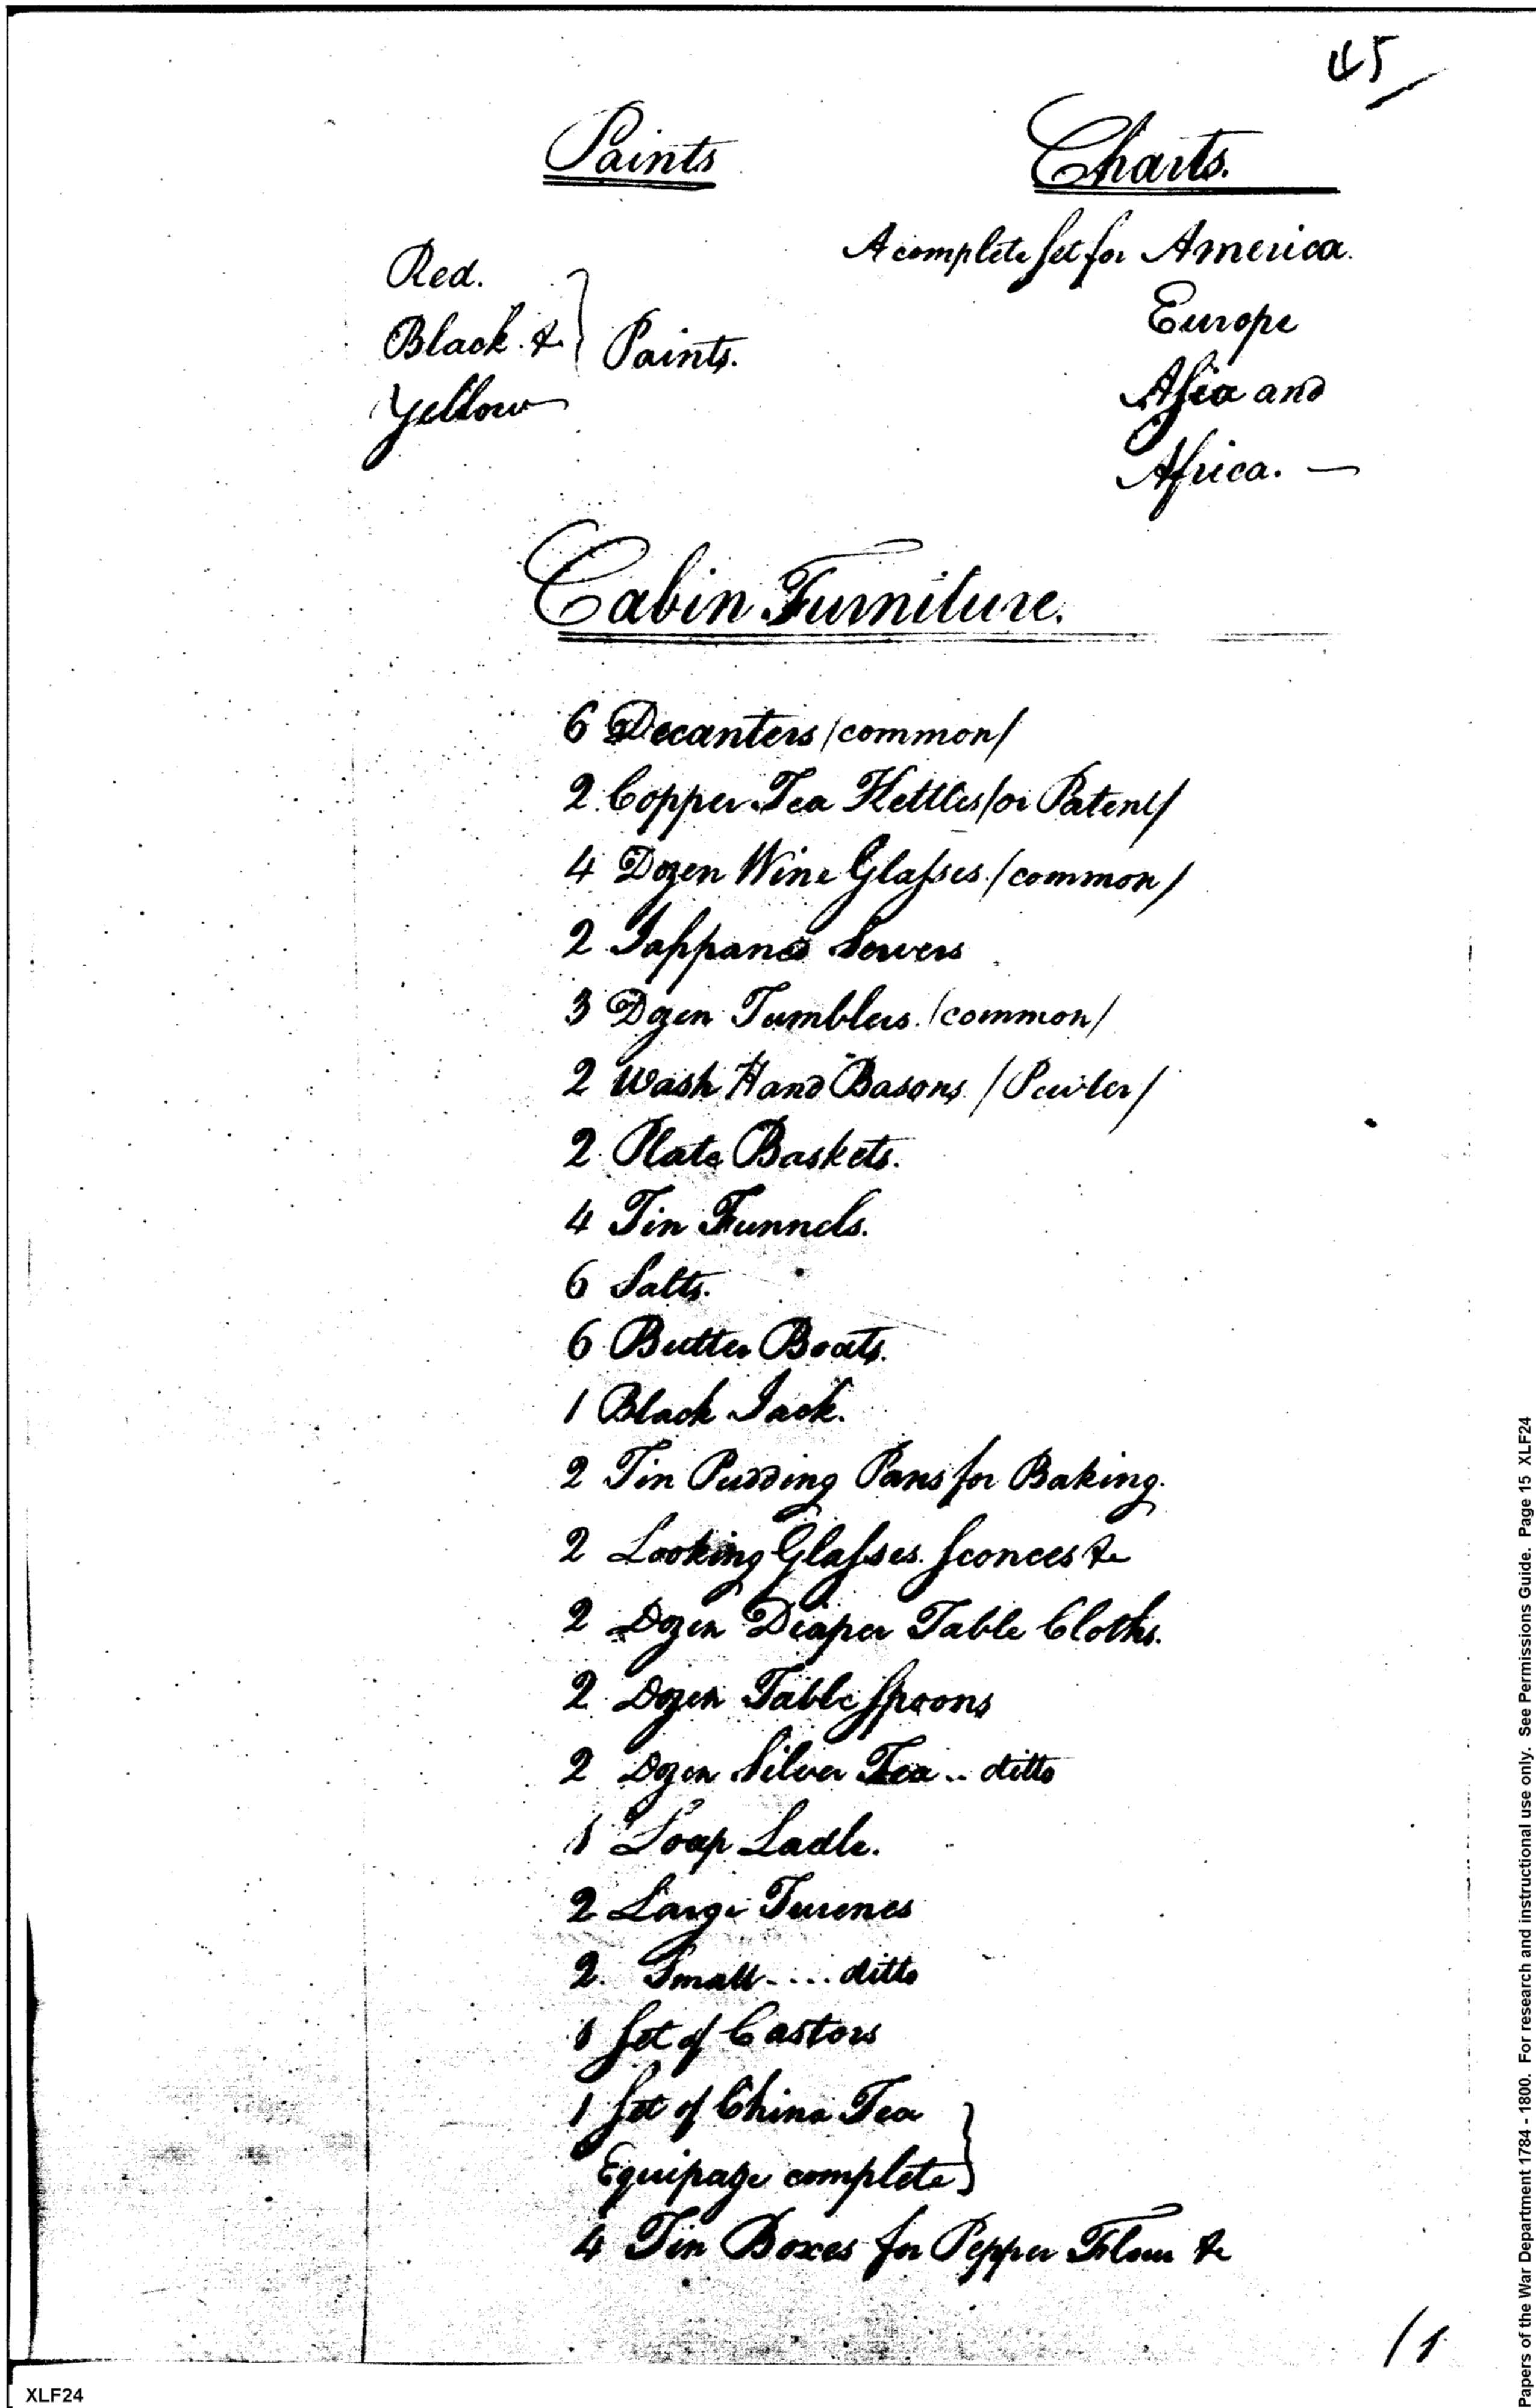 45
Paints
Red.
Black. &
Yellow
Paints.
Charts.
A complete set for America.
Europe
Asia and
Africa. —
Cabin Furniture.
6 Decanters /common/
2 Copper Tea Kettles /or Patent/
4 Dozen Wine Glasses. /common/
2 Jappand Servers
3 Dozen Tumblers. /common/
2 Wash Hand Basons /Pewter/
2 Plate Baskets.
4 Tin Funnels.
6 Salts.
6 Butter Boats.
1 Black Jack.
2 Tin Pudding Pans for Baking.
2 Looking Glasses. Sconces &c
2 Dozen Diaper Table Cloths.
2 Dozen Table Spoons
2 Dozen Silver Tea .. ditto
1 Soup Ladle.
2 Large Turenes
2. Small .... ditto
1 Set of Castors
1 Set of China Tea
Equipage complete
4 Tin Boxes for Pepper Flour &c
XLF24
Papers of the War Department 1784 - 1800. For research and instructional use only. See Permissions Guide. Page 15 XLF24